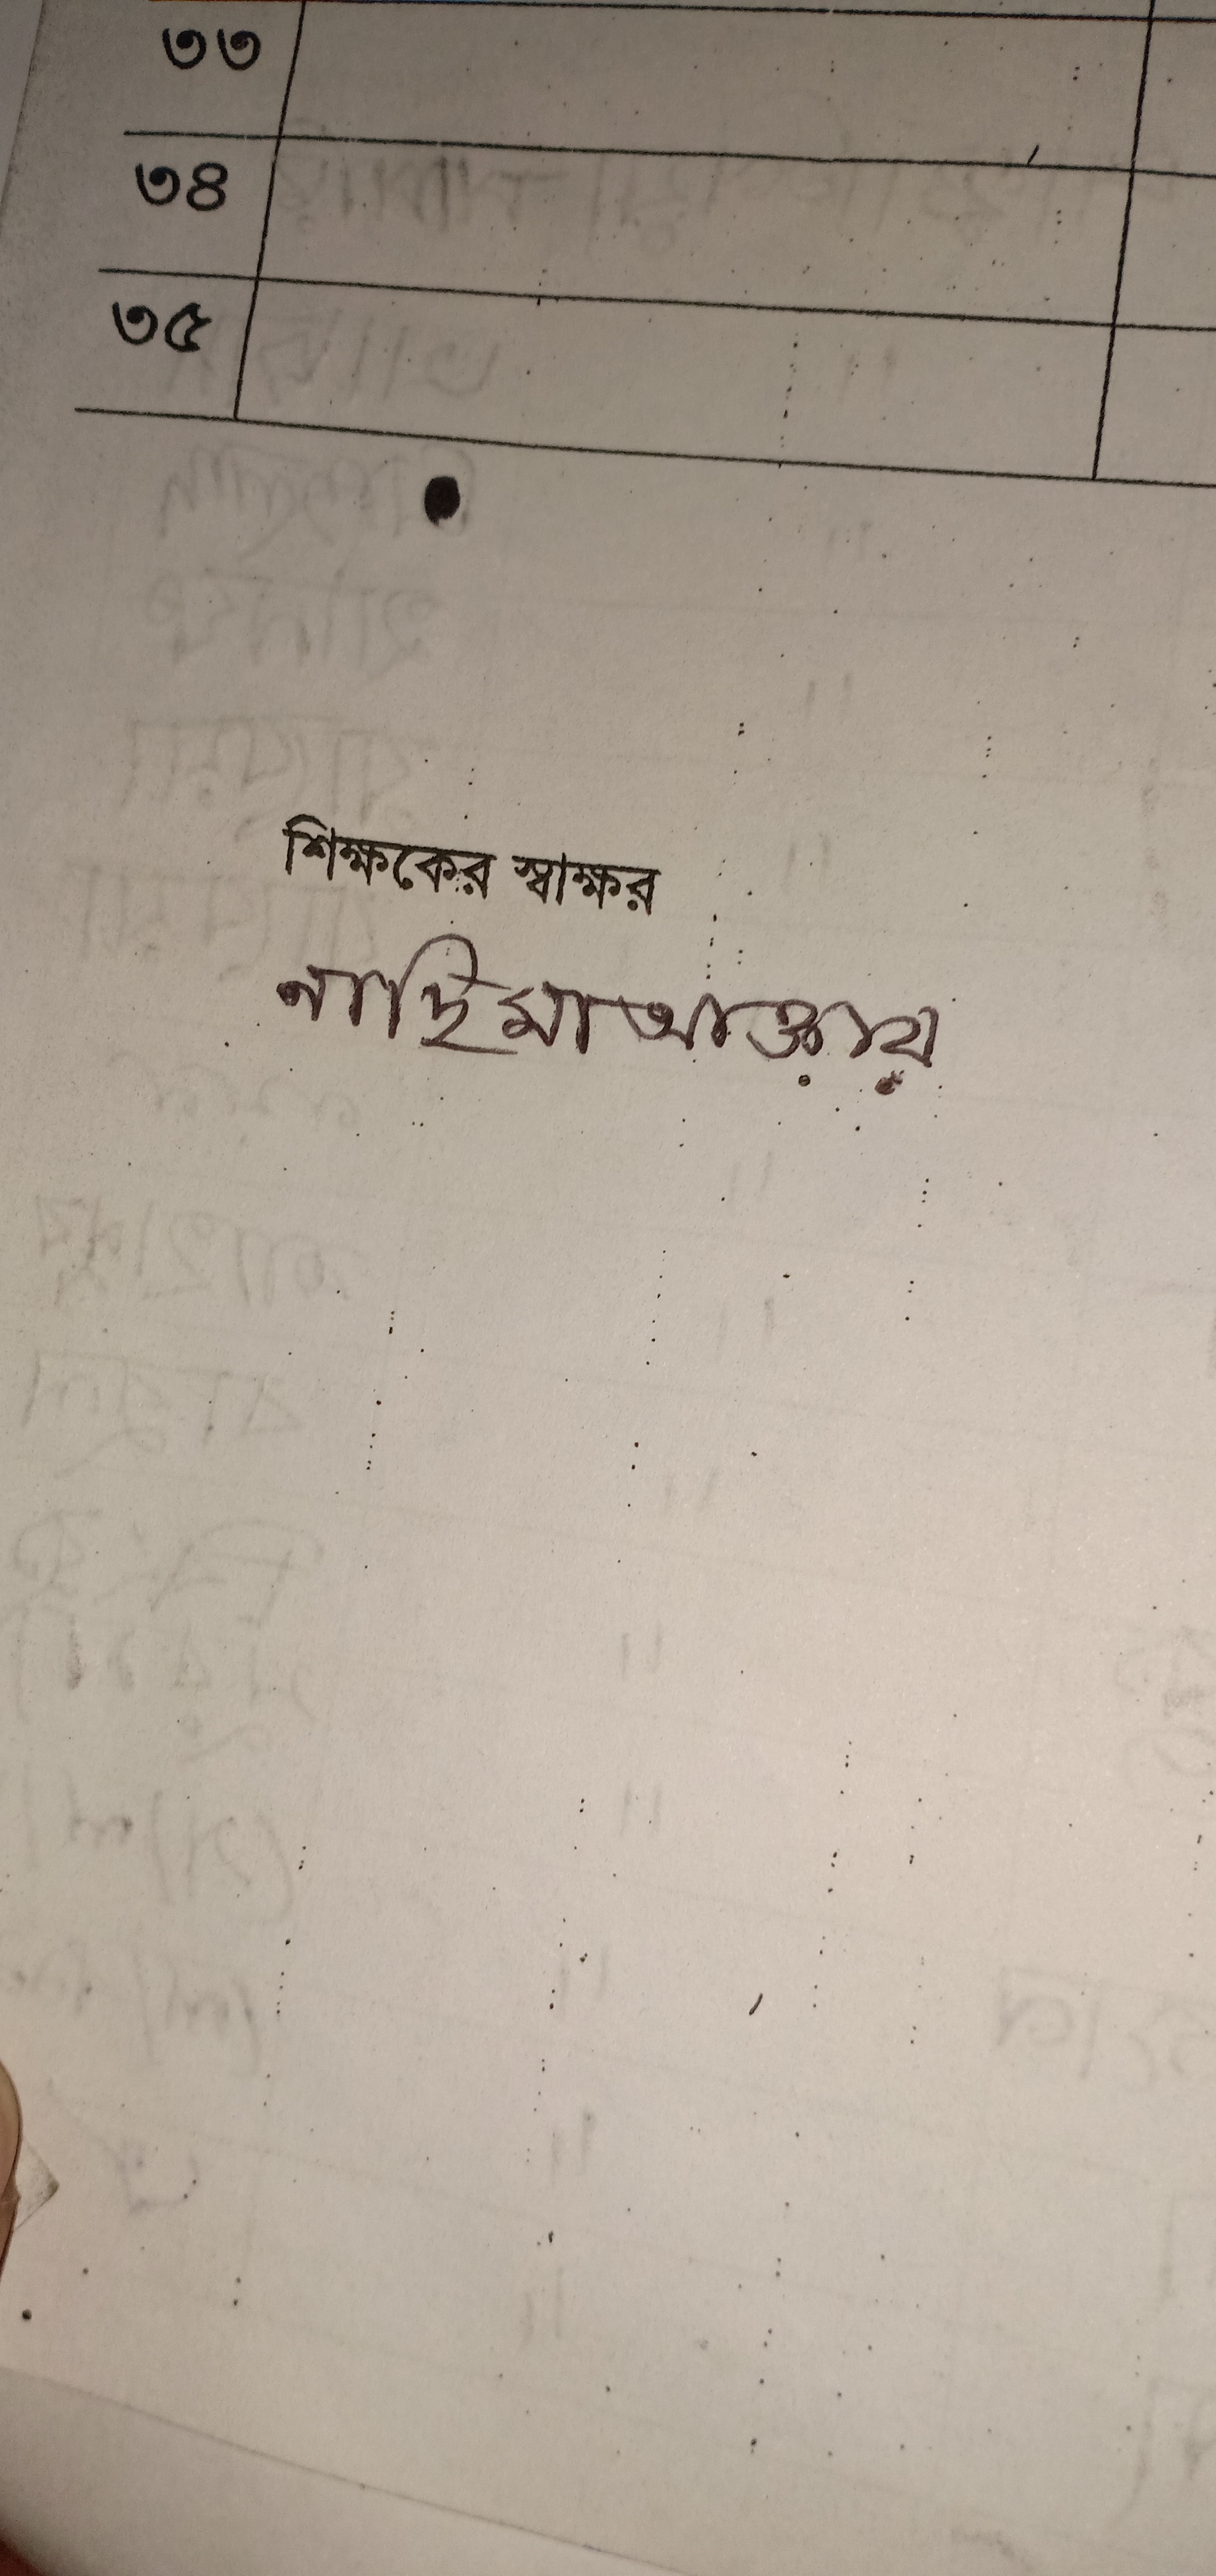 ৩৩
৩৪
৩৫
শিক্ষকের স্বাক্ষর
নাছিমা আক্তার